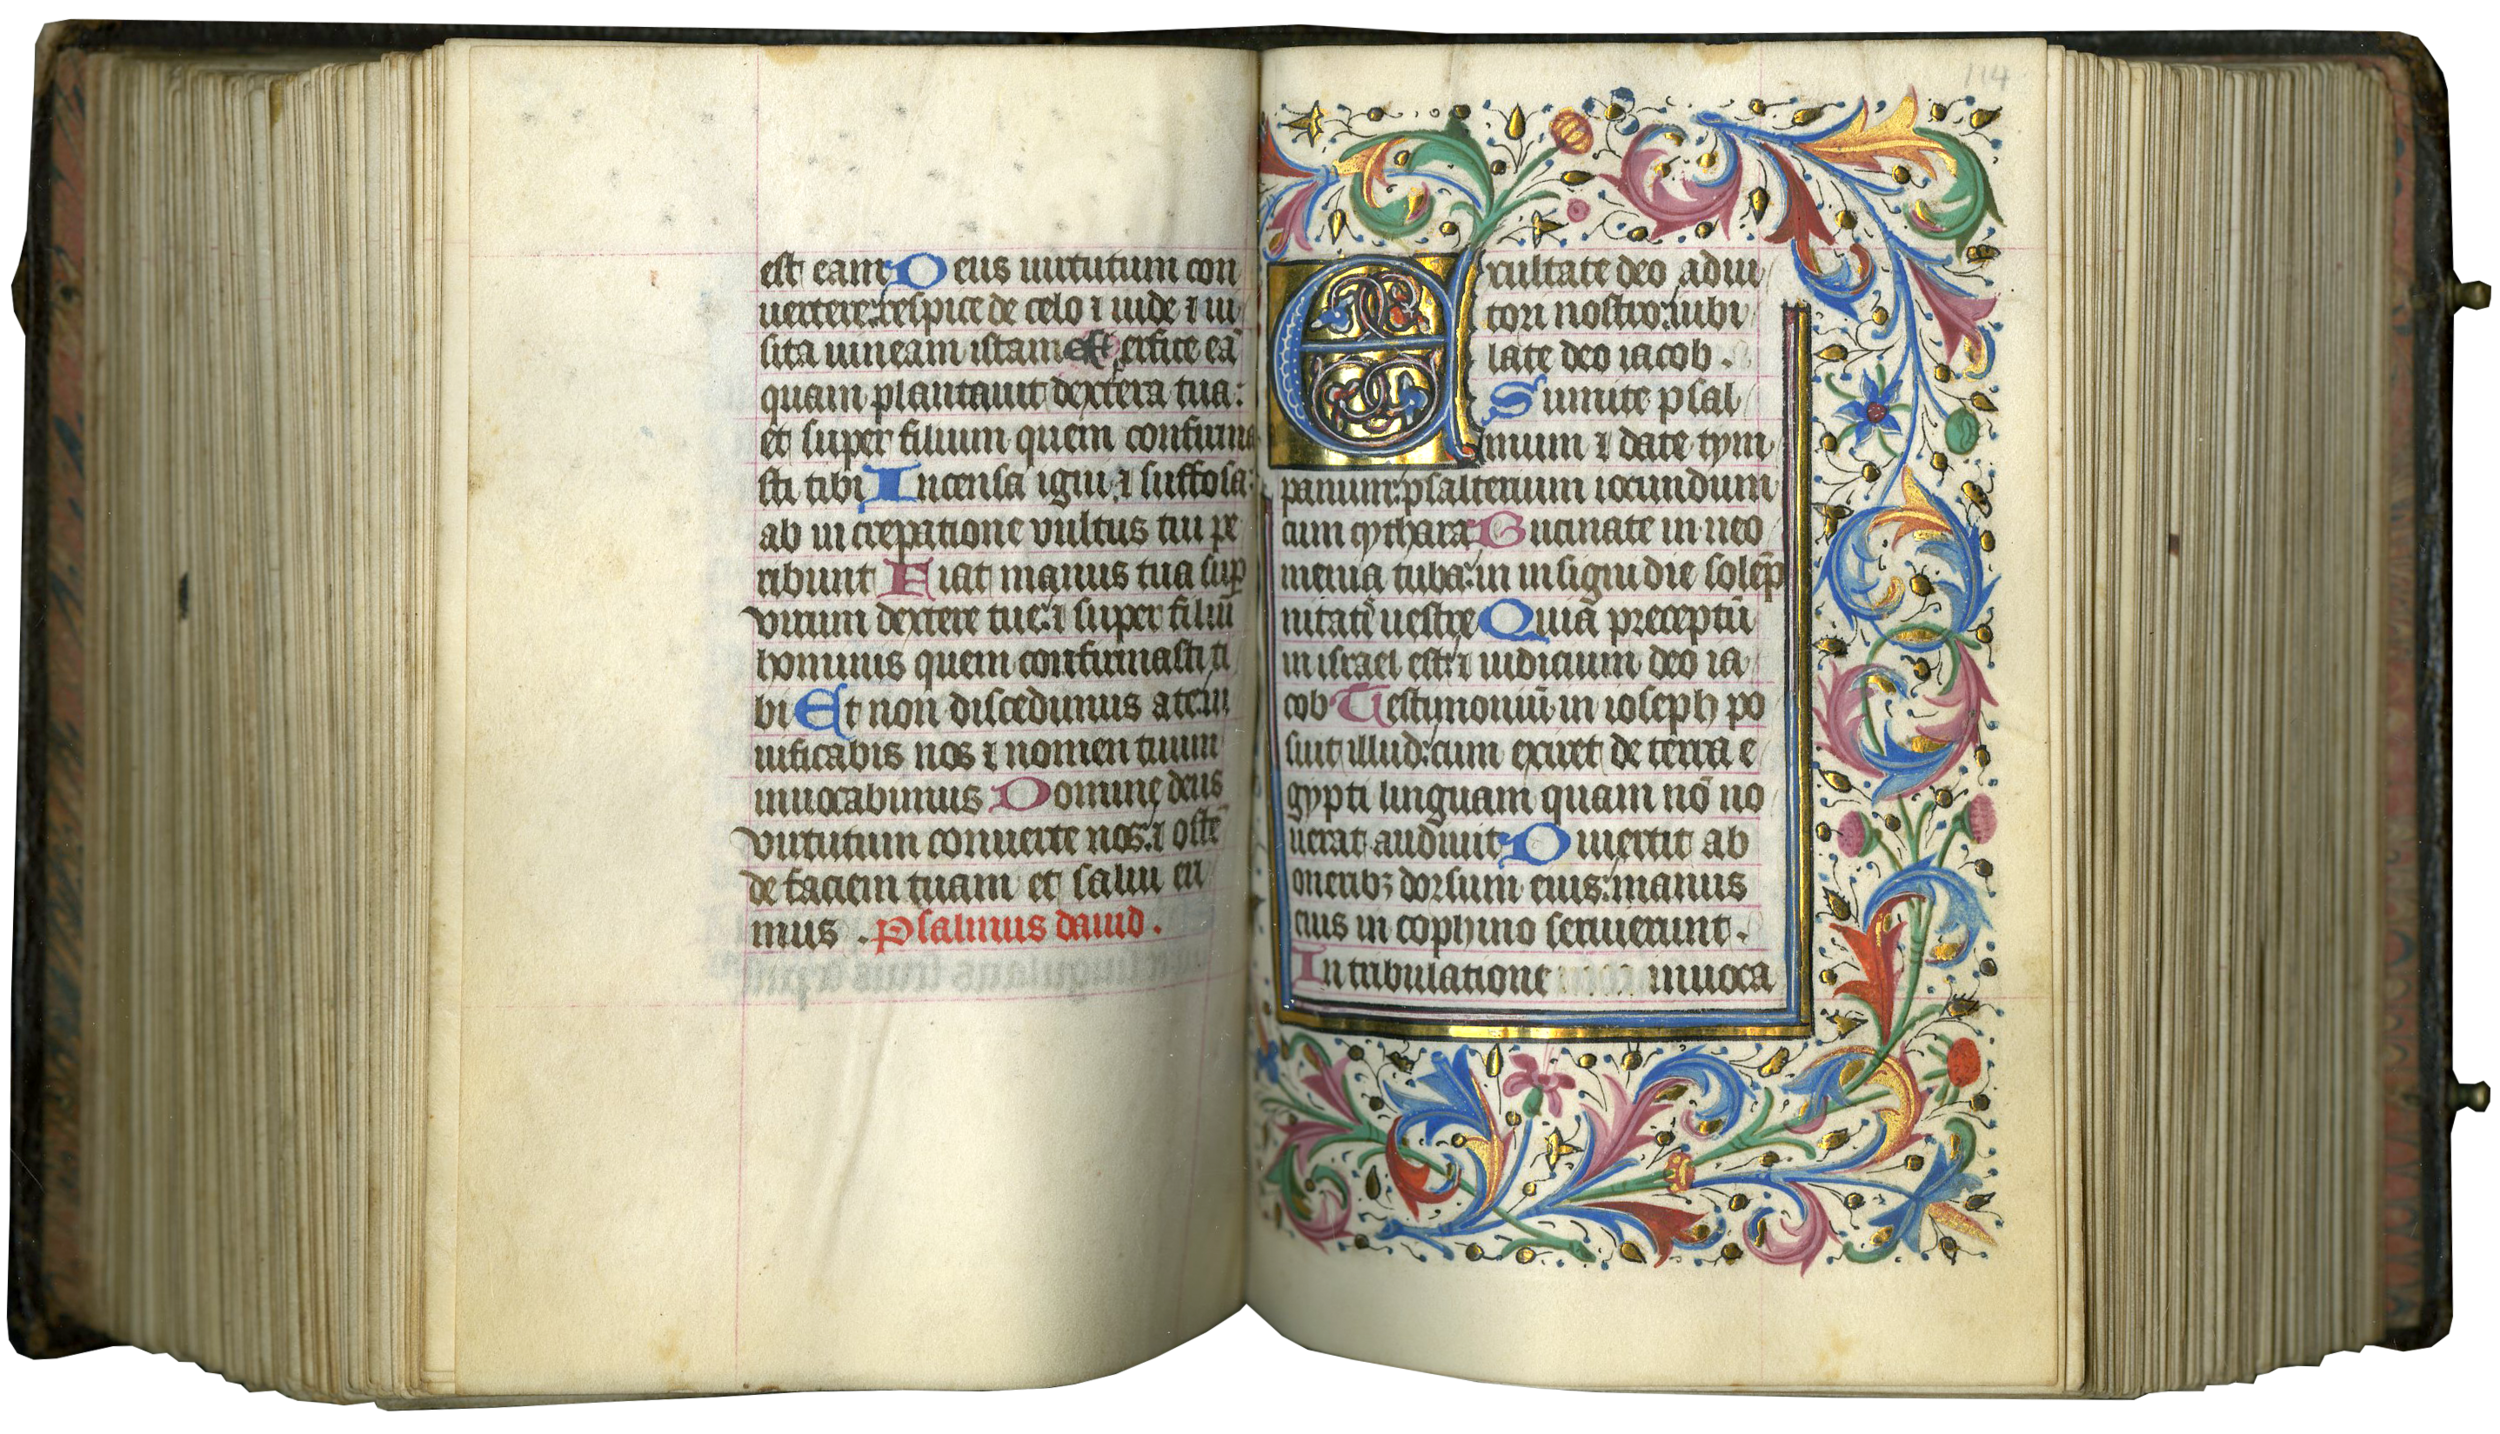 est eam Deus uirtutum con
uertere: respice de celo ⁊ uide ⁊ ui
sita uineam istam Et perfice eā
quam plantauit dextera tua:
et super filium quem confirma
sti tibi Incensa igni ⁊ suffosa:
ab increpatione vultus tui pe
ribunt Fiat manus tua suꝑ
virum dextere tue: ⁊ super filiū
hominis quem confirmasti ti
bi Et non discedimus a te: ui
uificabis nos ⁊ nomen tuum
inuocabimus Domine deus
virtutum conuerte nos: ⁊ ostē
de faciem tuam et salui eri
mus . Psalmus dauid .
114
Exultate deo adiu
tori nostro: iubi
late deo iacob .
Sumite psal
mum ⁊ date tym
panum: psalterium iocundum
cum cythara Bucinate in neo
menia tuba: in insigni die solēp
nitatꝭ uestre Quia preceptū
in israel est: ⁊ iudicium deo ia
cob Testimoniū in ioseph po
suit illud: cum exiret de terra e
gypti linguam quam nō no
uerat audiuit Diuertit ab
oneribꝫ dorsum eius: manus
eius in cophino seruierunt .
In tribulatione inuoca